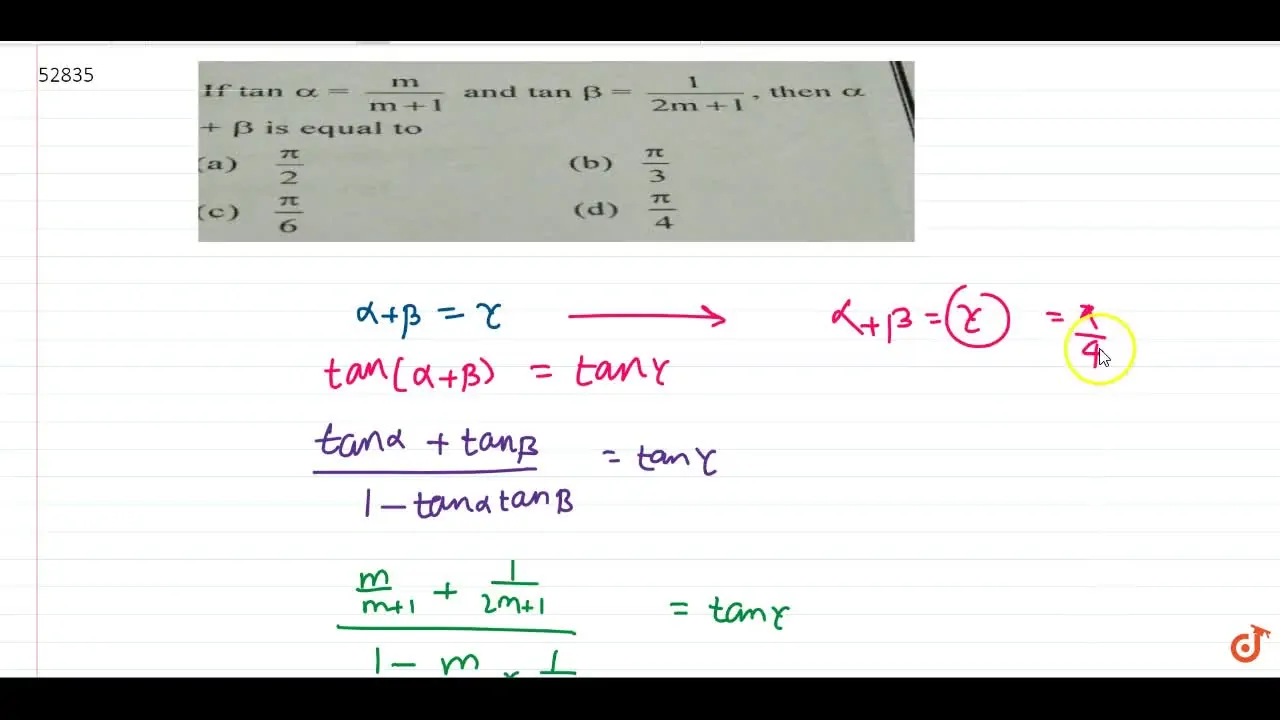 52835
If tan α = m/(m+1) and tan β = 1/(2m+1), then α
+ β is equal to
(a) π/2 (b) π/3
(c) π/6 (d) π/4
α+β = γ → α+β = γ = π/4
tan(α+β) = tanγ
(tanα + tanβ)/(1 - tanα tanβ) = tanγ
(m/(m+1) + 1/(2m+1))/(1 - m × 1 = tanγ